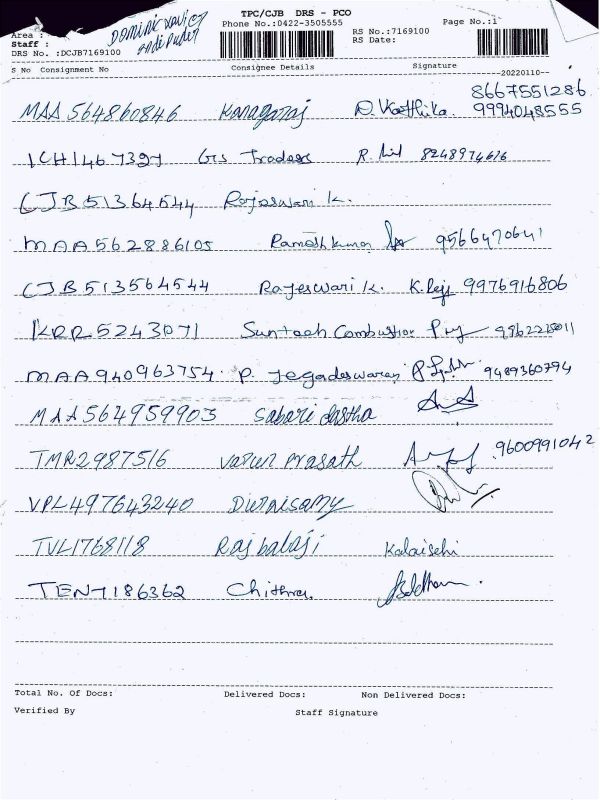 TPC/CJB DRS - PCO
Dominic xavier
Phone No.:0422-3505555 Page No.:1
Area :
RS No.:7169100
Staff :
RS Date:
DRS No. :DCJB7169100
S No Consignment No Consignee Details Signature
--20220110--
8667551286
MAA 564860846 Kanagaraj D. Karthika. 9994048555
ICH1467327 Gts Traders R. 8248974676
CJB51364544 Rajeswari K.
MAA562886105 Rameshkumar 9566470641
CJB513564544 Rajeswari K. K. Raji 9976916806
KRR5243071 Suntech Combustion
MAA940963754. P. Jegadeswaran 9489360794
MAA564959903 Sabari dastha
TMR2987516 Varun prasath .9600991042
VPL497643240 Duraisamy
TVL1768118 Rajbalaji Kalaisehi
TEN7186362 Chithra.
Total No. Of Docs: Delivered Docs: Non Delivered Docs:
Verified By Staff Signature